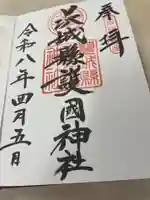 奉拝
茨城縣護國神社
令和八年四月五日